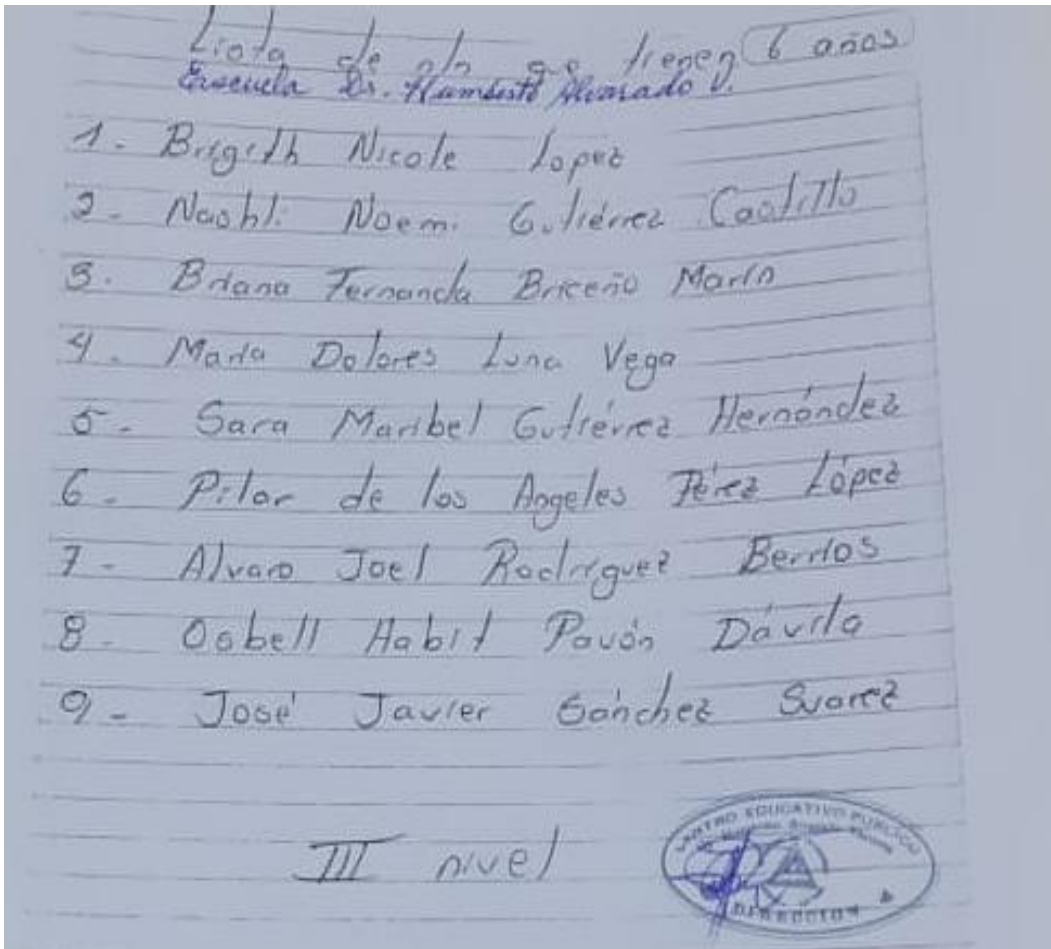 Lista de n/n que tienen 6 años
Escuela Dr. Humberto Alvarado V.
1. Brigith Nicole Lopez
2. Nashli Noemi Gutiérrez Castillo
3. Briana Fernanda Briceño Marín
4. María Dolores Luna Vega
5. Sara Maribel Gutiérrez Hernández
6. Pilar de los Angeles Pérez López
7. Alvaro Joel Rodríguez Berríos
8. Osbell Habit Pavón Dávila
9. José Javier Sánchez Suarez
III nivel
CENTRO EDUCATIVO PUBLICO
DIRECCION